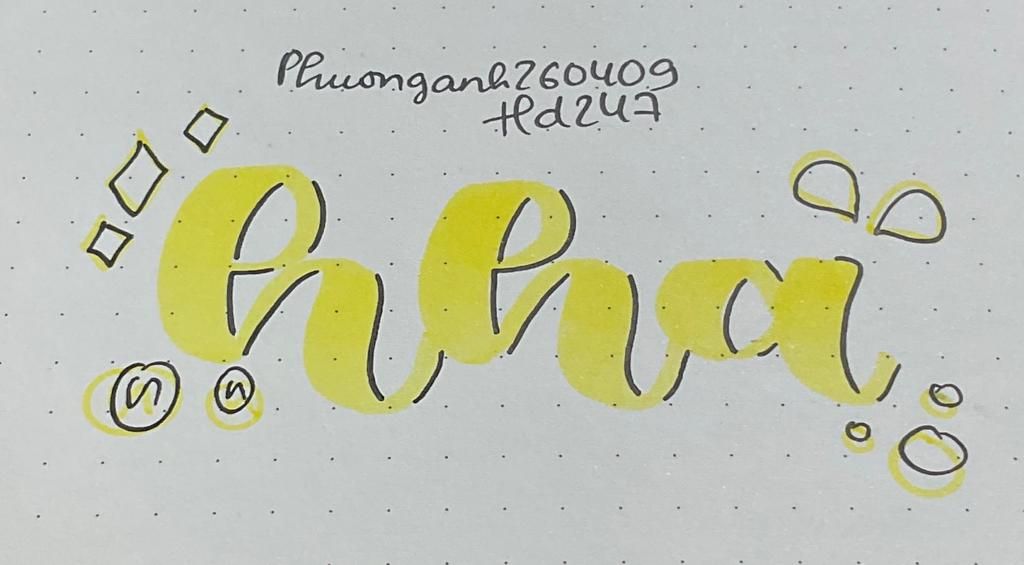 Phuonganh260409
Hd247
hha